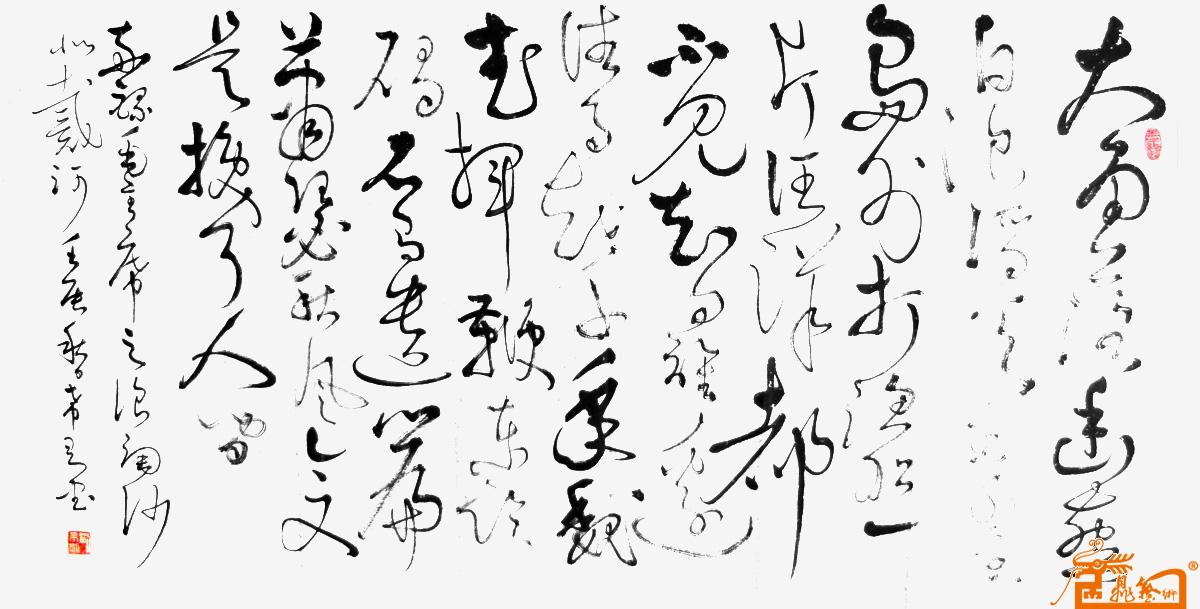 大雨落幽燕
白浪滔天秦皇
岛外打渔船一
片汪洋都
不见知向谁边
往事越千年魏
武挥鞭东临
碣石有遗篇
萧瑟秋风今又
是换了人间
录毛主席之浪淘沙
北戴河 壬辰秋 书